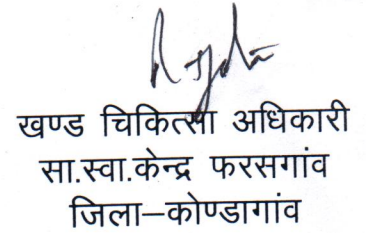 खण्ड चिकित्सा अधिकारी
सा.स्वा.केन्द्र फरसगांव
जिला–कोण्डागांव